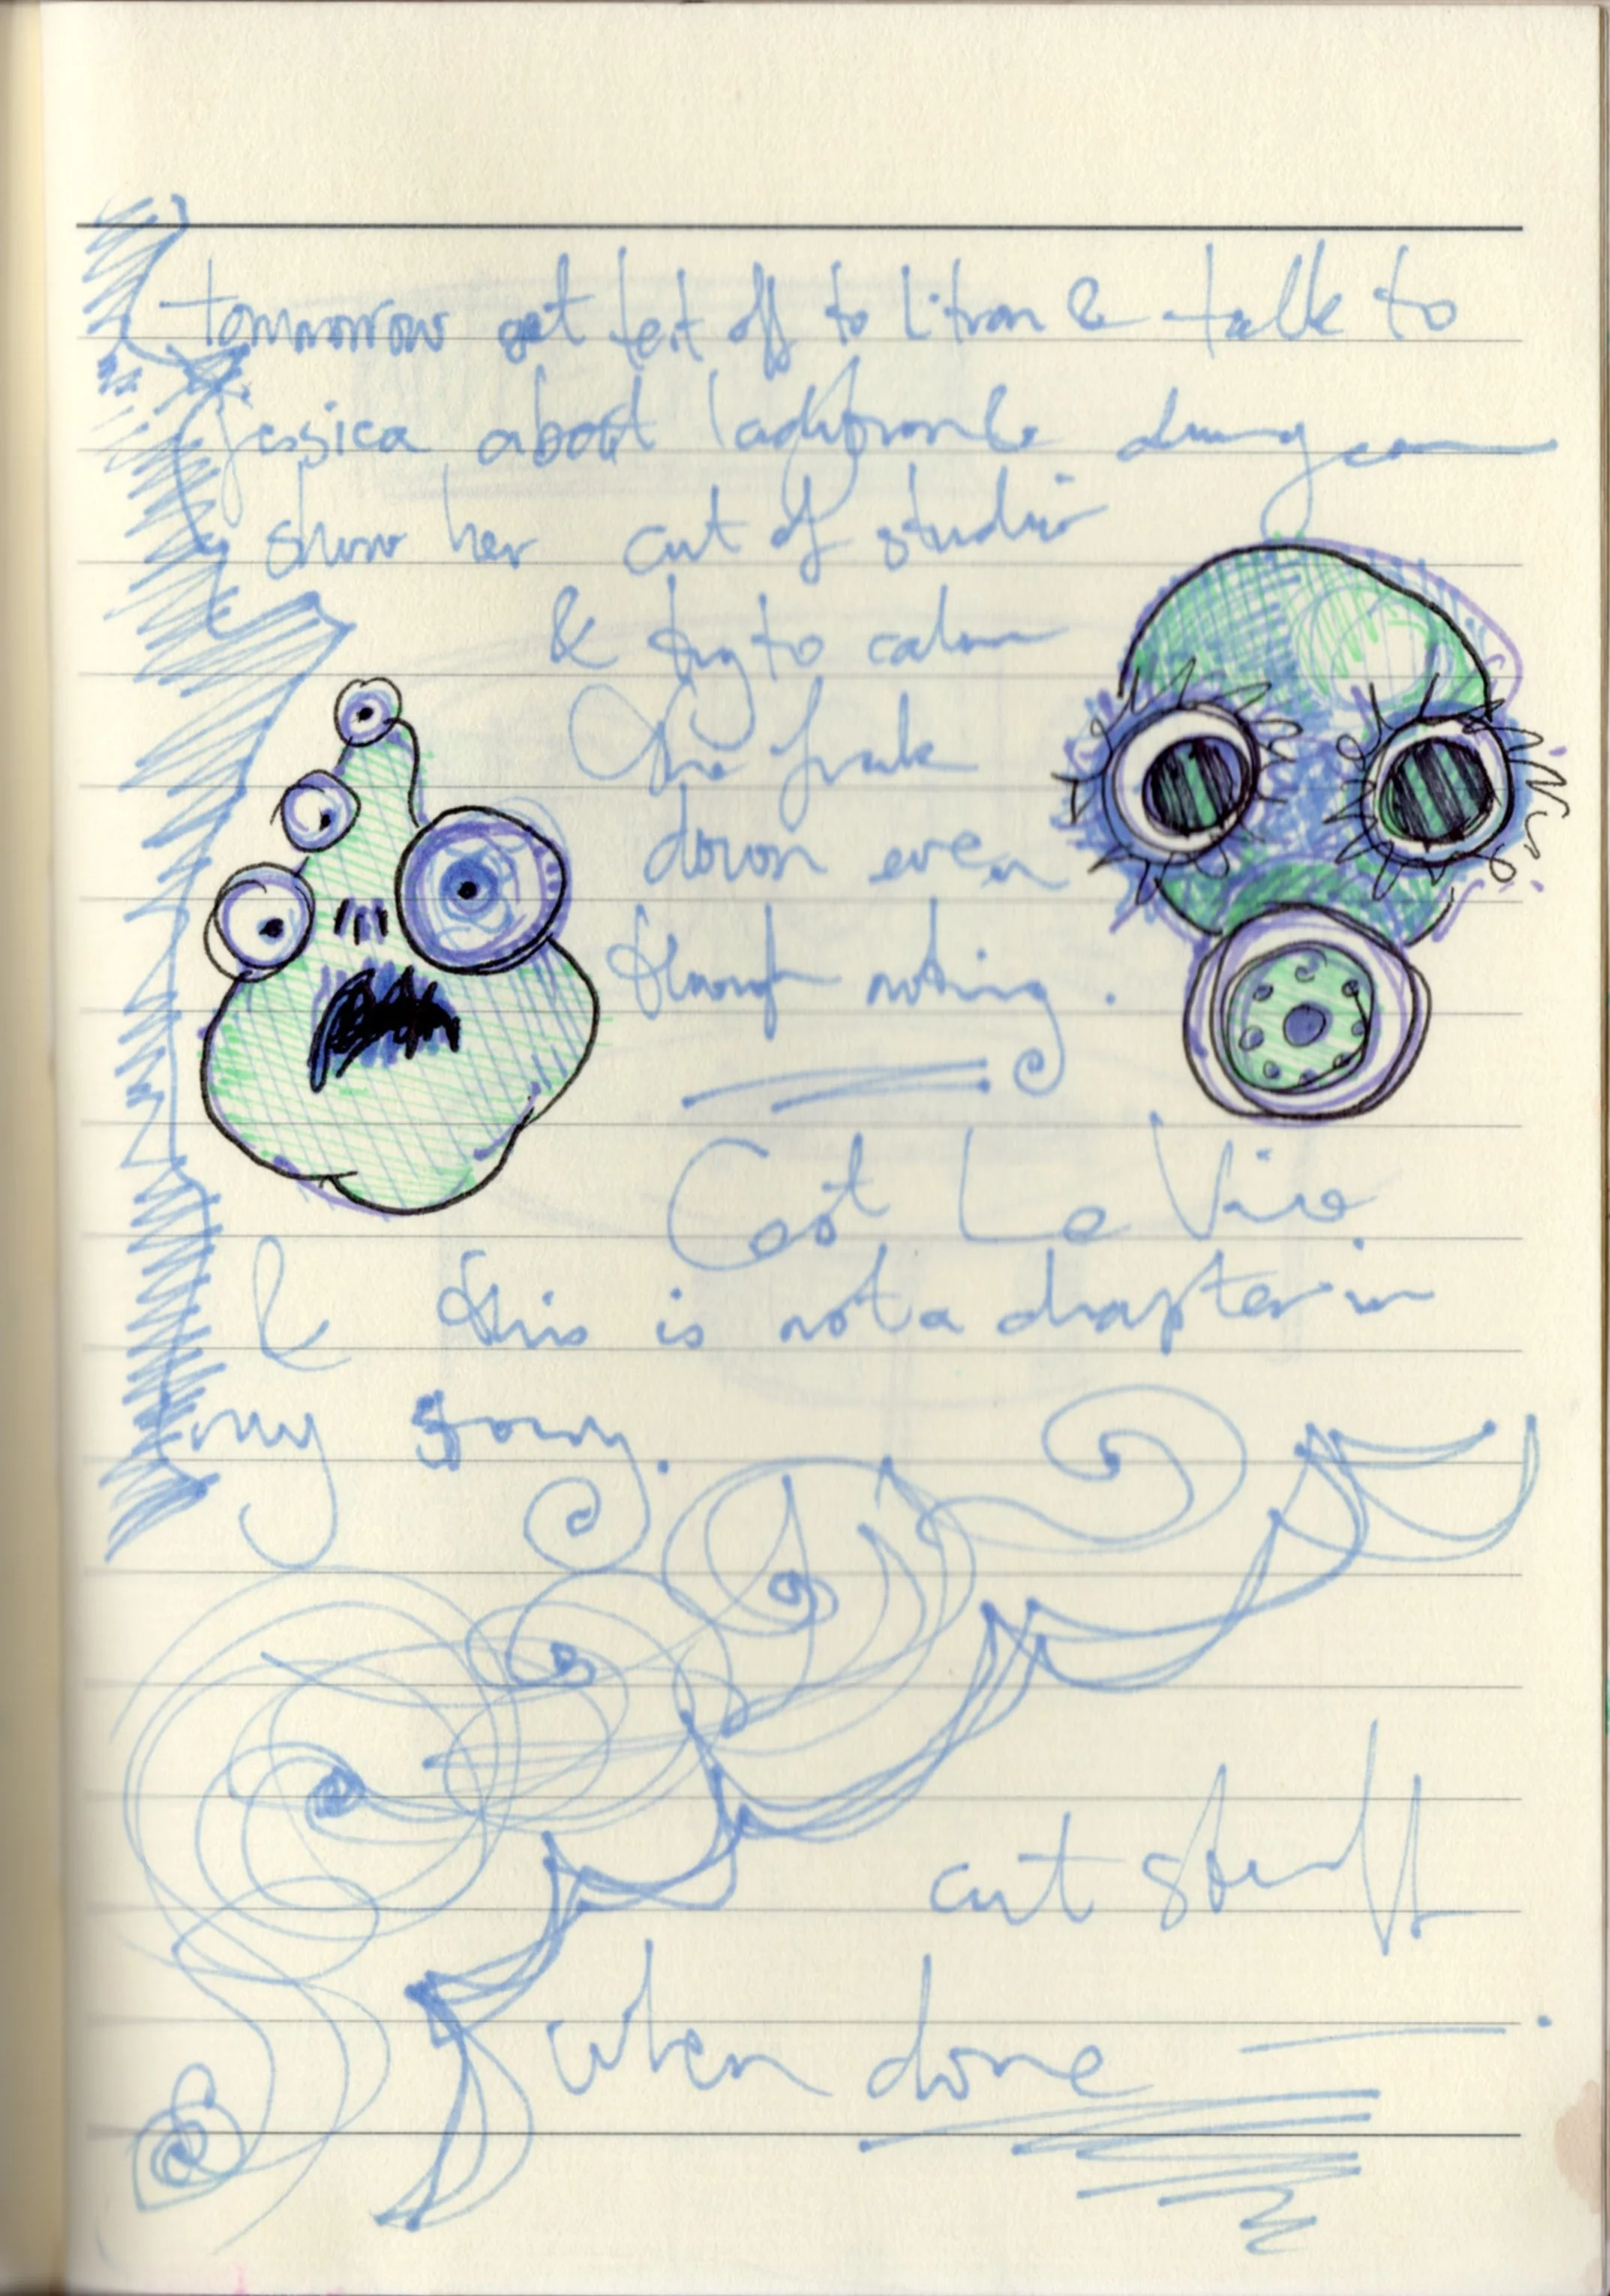 tomorrow get text off to & talk to
jessica about
show her cut of studio
& try to calm
the freak
down even
though nothing.
Cest La Vie
& this is not a chapter in
my song.
cut stuff
when done